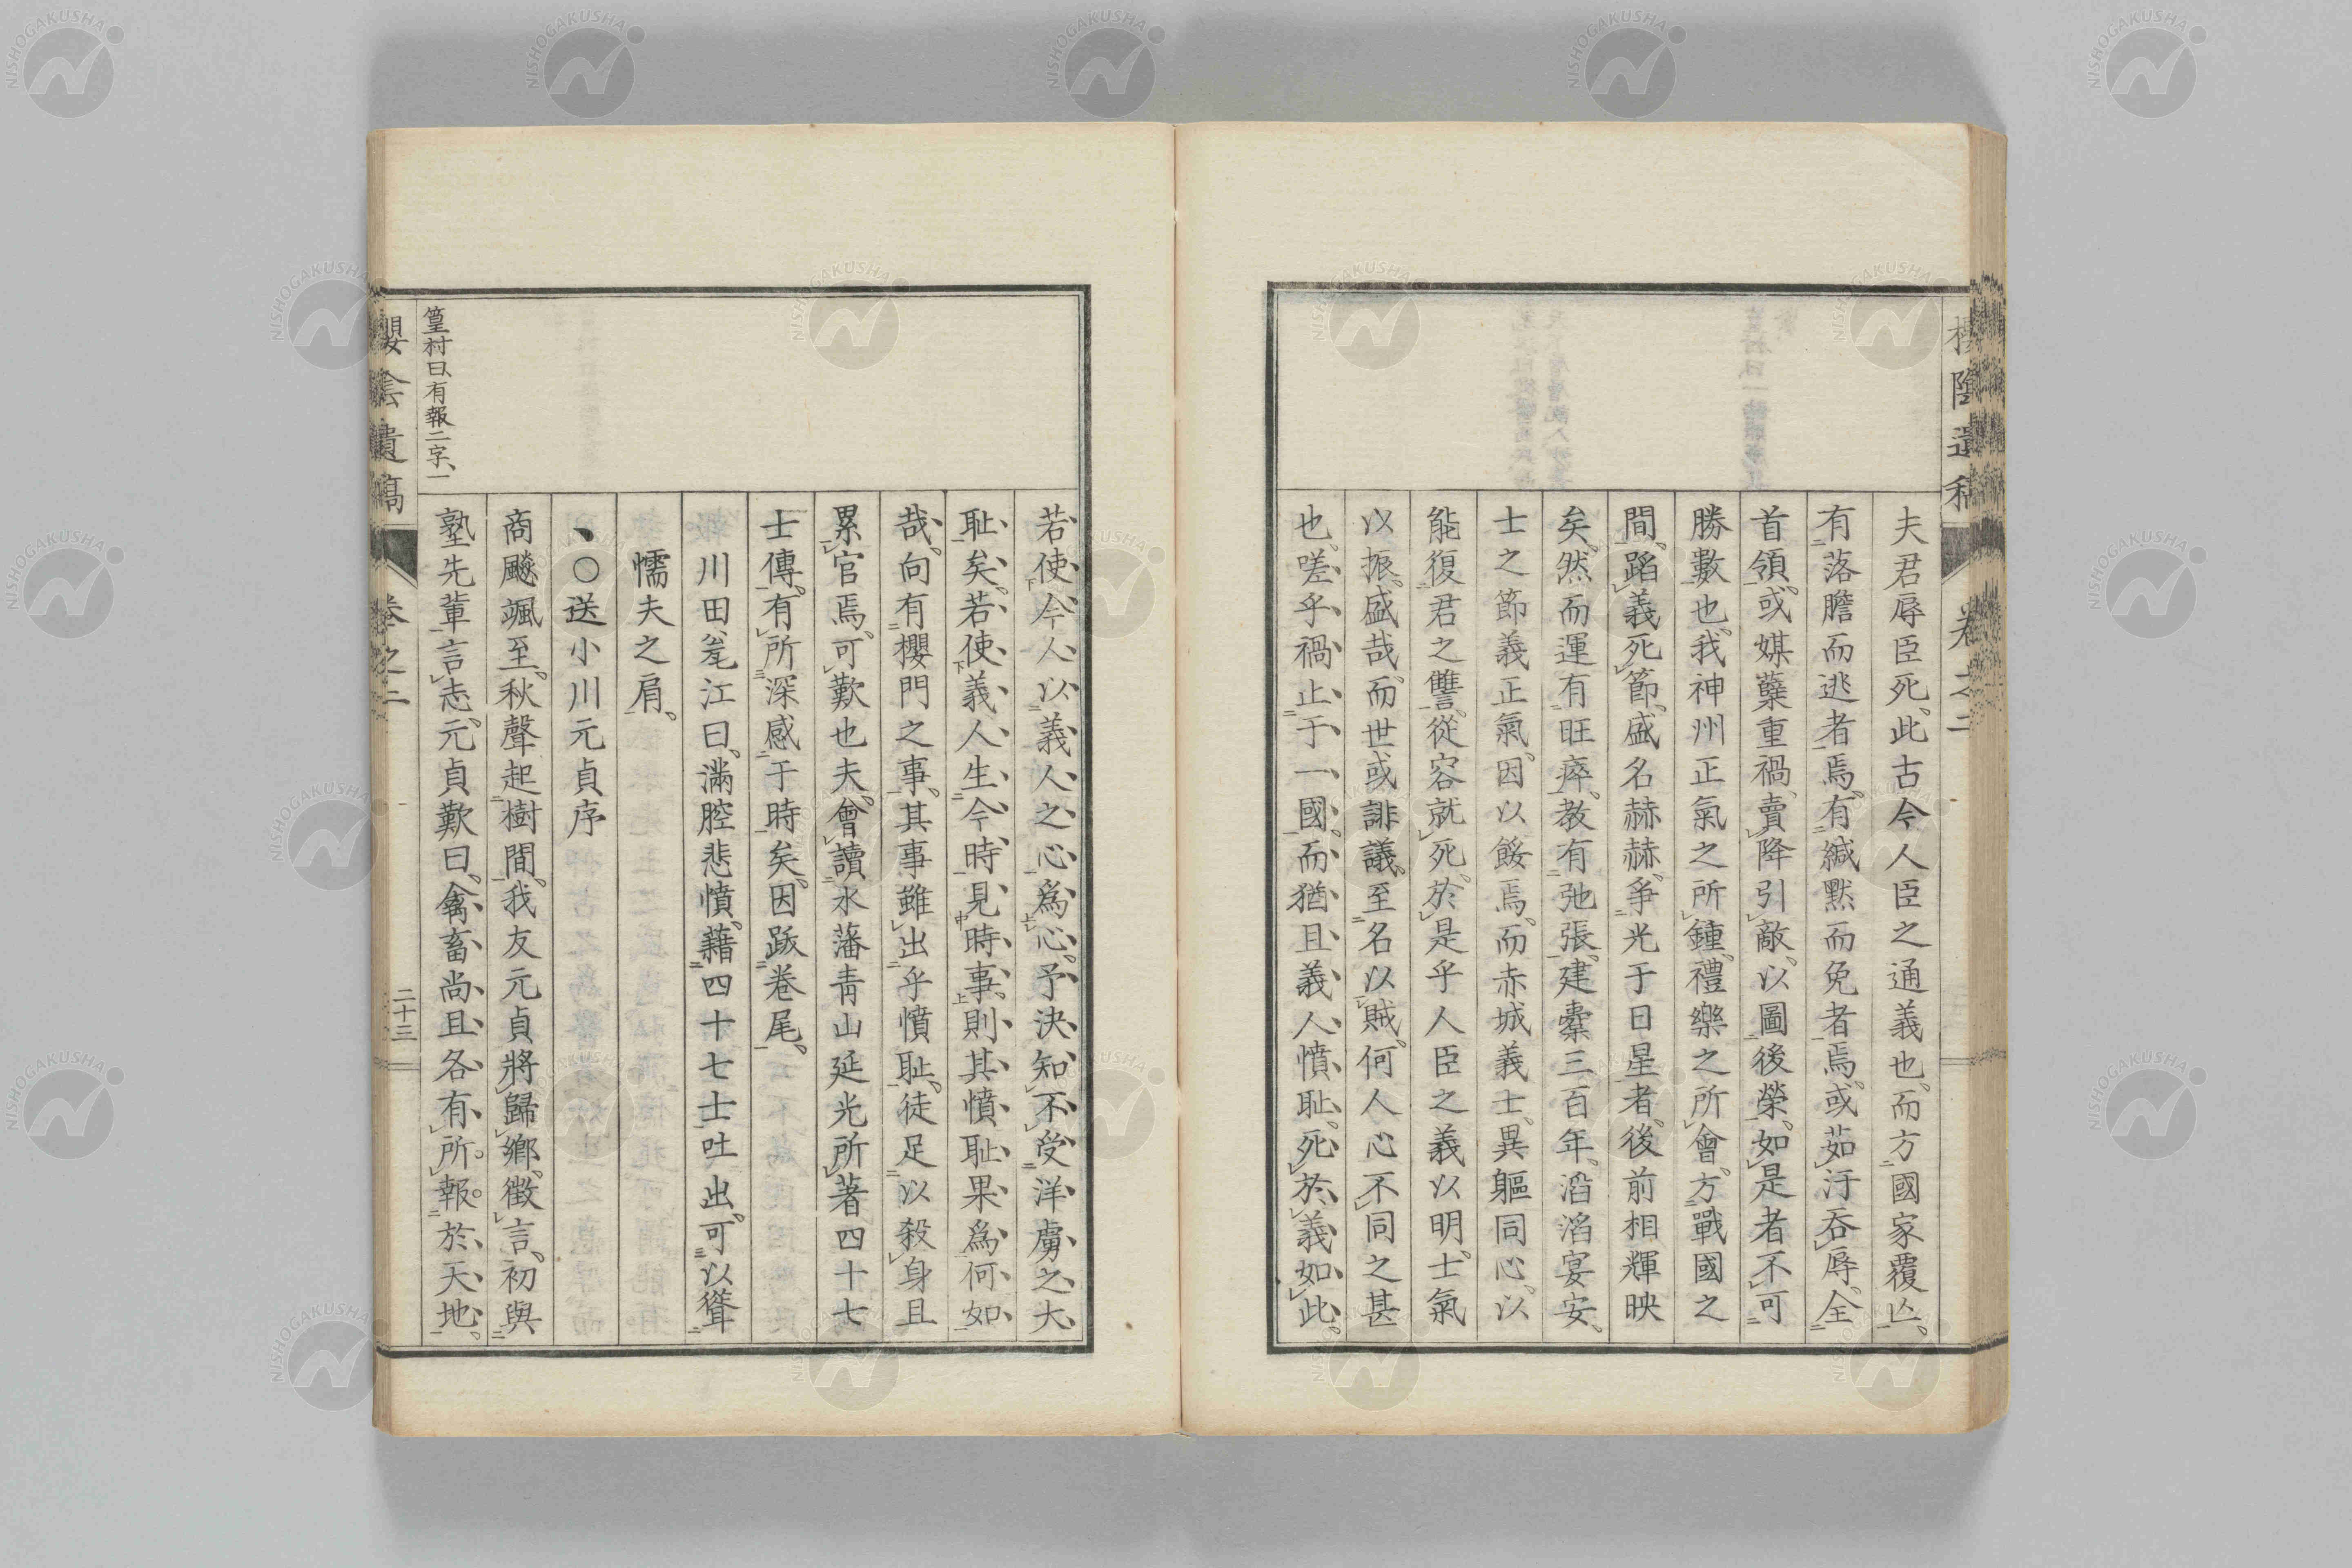 夫君辱臣死、此古今人臣之通義也、而方國家覆亾、
有落膽而逃者焉、有緘默而免者焉、或茹汙吞辱、全
首領、或媒蘖重禍、賣降引敵、以圖後榮、如是者不可
勝數也、我神州正氣之所鍾、禮樂之所會、方戰國之
間、蹈義死節、盛名赫赫、爭光于日星者、後前相輝映
矣、然而運有旺瘁、教有弛張、建櫜三百年、滔滔宴安、
士之節義正氣、因以餒焉、而赤城義士、異軀同心、以
能復君之讐、從容就死、於是乎人臣之義以明、士氣
以振、盛哉、而世或誹議、至名以賊、何人心不同之甚
也、嗟乎、禍止于一國、而猶且義人憤耻、死於義如此、
若使今人以義人之心爲心、予決知不受洋虜之大
耻矣、若使義人生今時見時事、則其憤耻果爲何如
哉、向有櫻門之事、其事雖出乎憤耻、徒足以殺身且
累官焉、可歎也夫、會讀水藩青山延光所著四十七
士傳、有所深感于時矣、因跋卷尾、
川田瓮江曰、滿腔悲憤、藉四十七士吐出、可以聳
懦夫之肩、
、○送小川元貞序
商飈颯至、秋聲起樹間、我友元貞將歸鄉、徵言、初與
塾先輩言志、元貞歎曰、禽畜尚且各有所報於天地、
篁村曰、有報二字、一
櫻陰遺稿
卷之二
二十三
NISHOGAKUSHA